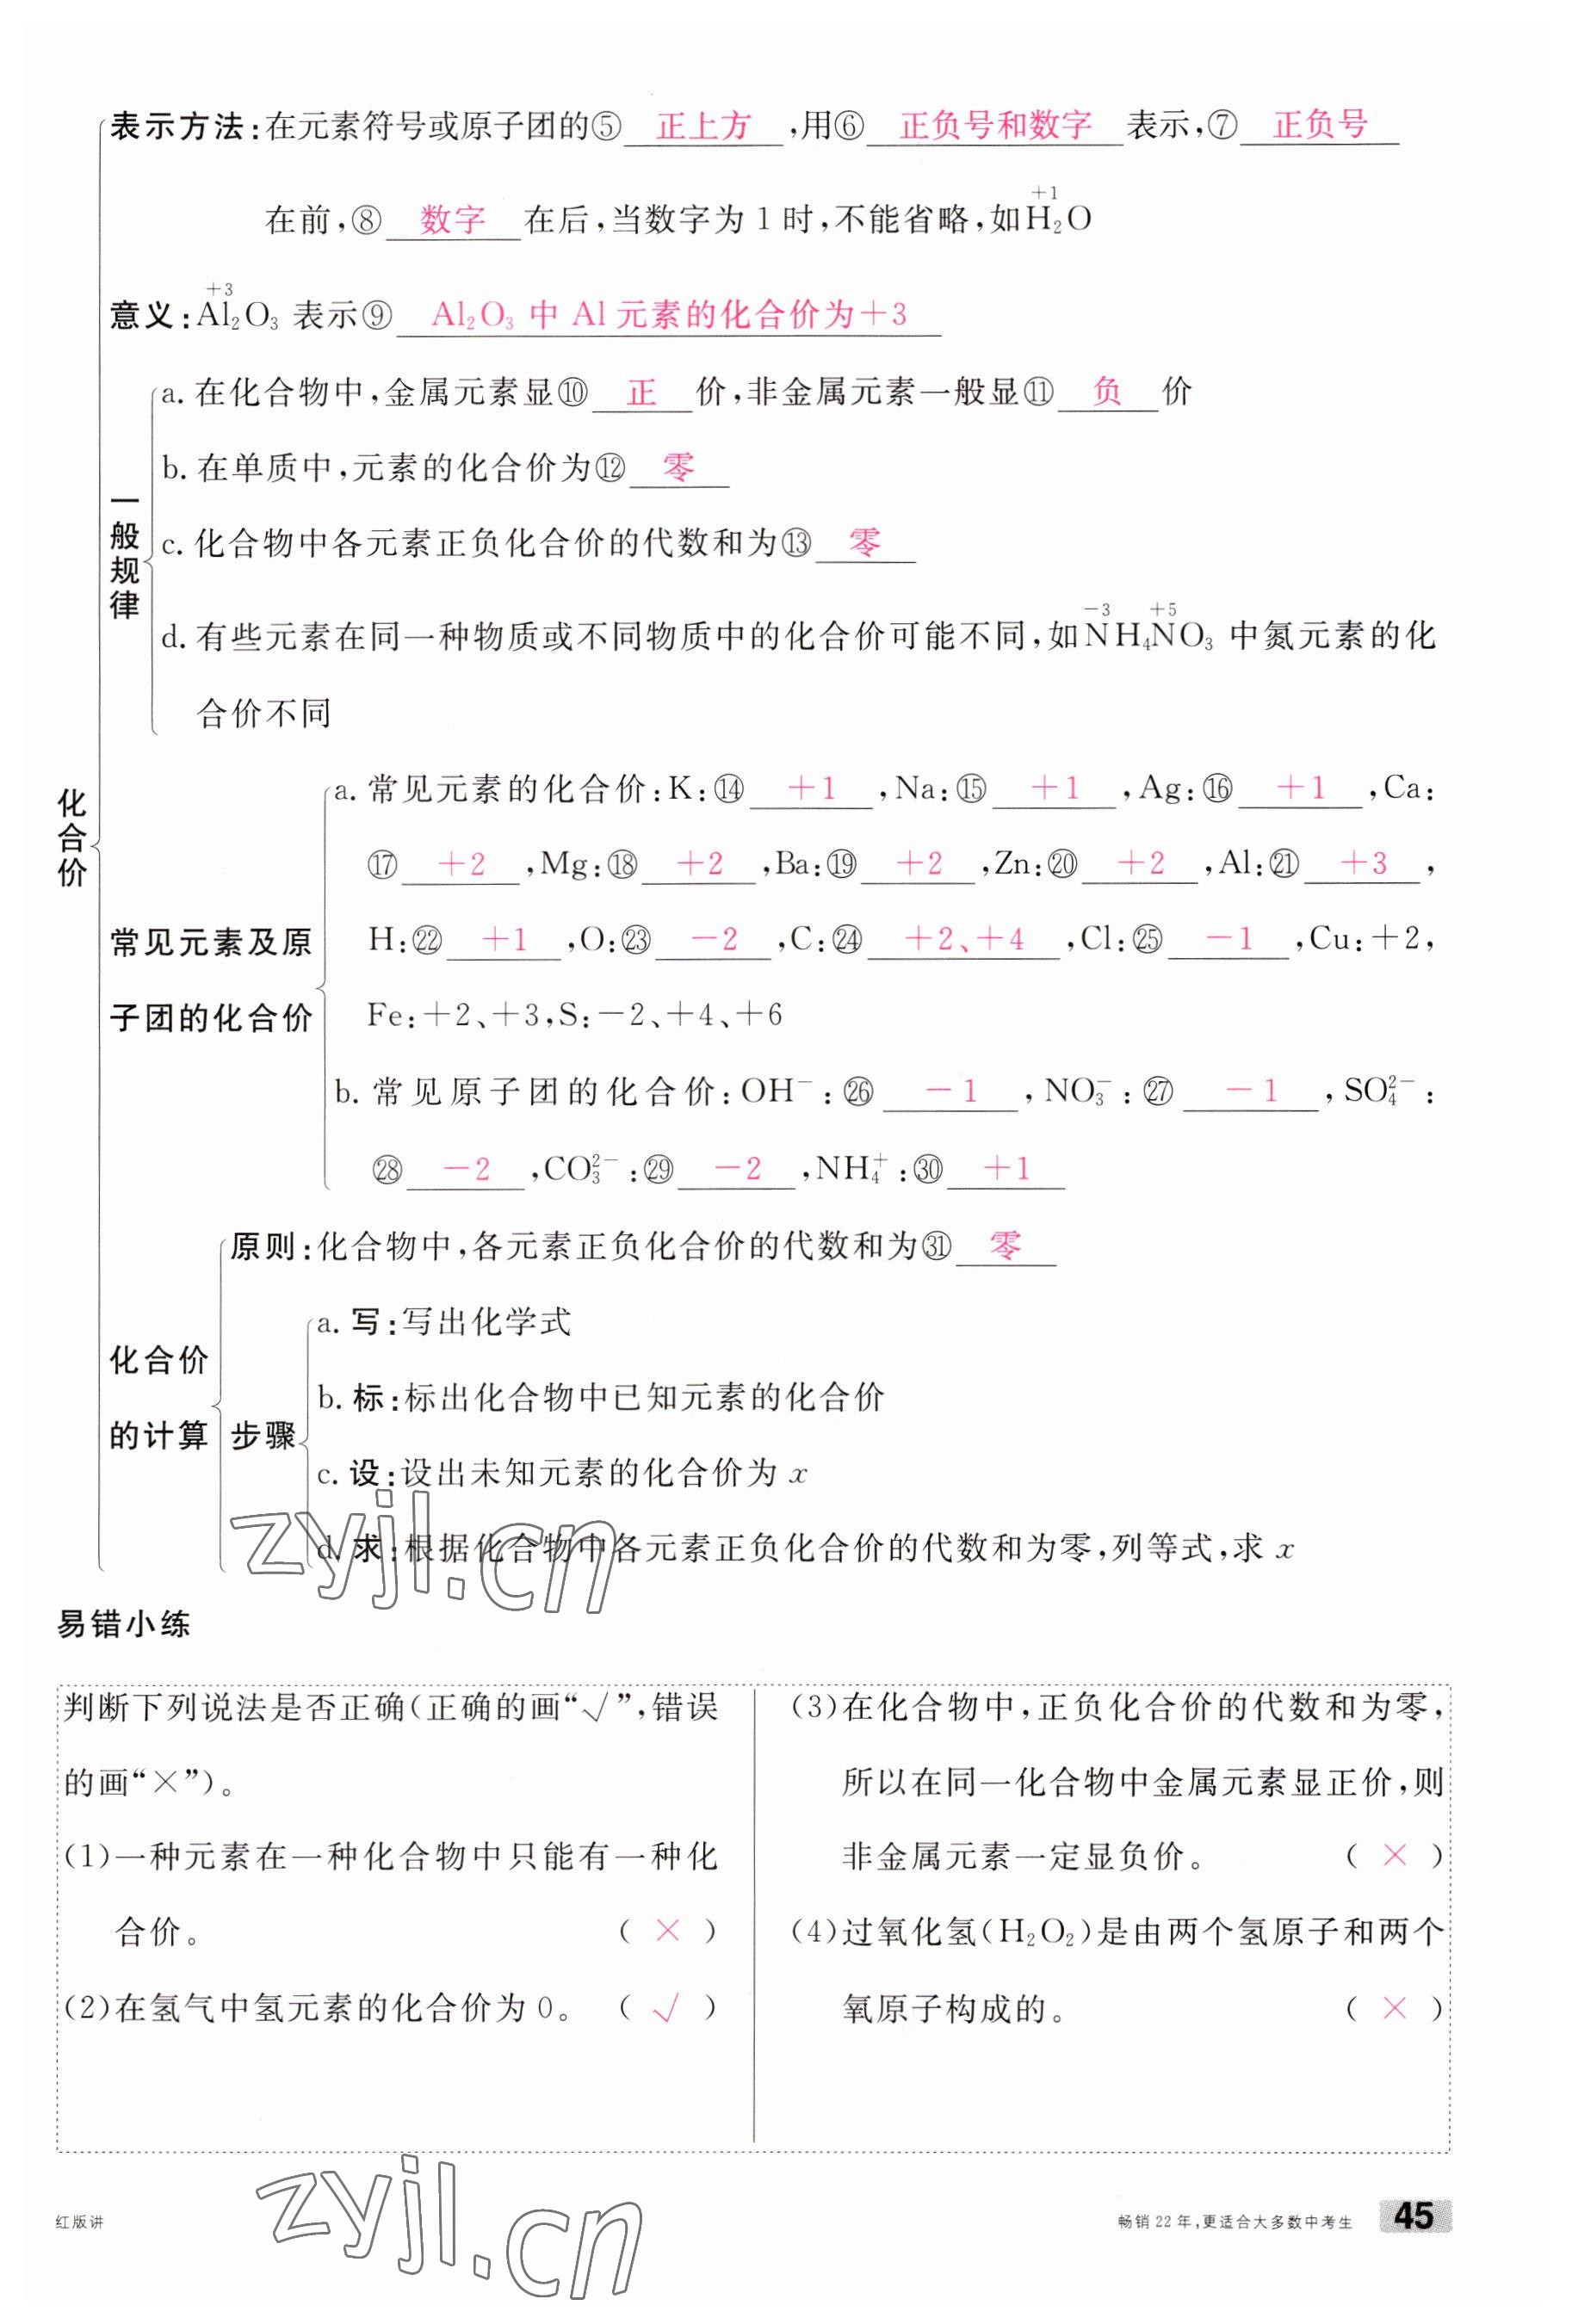 表示方法:在元素符号或原子团的⑤ 正上方 ,用⑥ 正负号和数字 表示,⑦ 正负号
在前,⑧ 数字 在后,当数字为 1 时,不能省略,如H₂O
+1
意义:Al₂O₃ 表示⑨ Al₂O₃ 中 Al 元素的化合价为+3
+3
一般规律
a. 在化合物中,金属元素显⑩ 正 价,非金属元素一般显⑪ 负 价
b. 在单质中,元素的化合价为⑫ 零
c. 化合物中各元素正负化合价的代数和为⑬ 零
−3 +5
d. 有些元素在同一种物质或不同物质中的化合价可能不同,如NH₄NO₃ 中氮元素的化
合价不同
化合价
常见元素及原
子团的化合价
a. 常见元素的化合价:K:⑭ +1 ,Na:⑮ +1 ,Ag:⑯ +1 ,Ca:
⑰ +2 ,Mg:⑱ +2 ,Ba:⑲ +2 ,Zn:⑳ +2 ,Al:㉑ +3 ,
H:㉒ +1 ,O:㉓ −2 ,C:㉔ +2、+4 ,Cl:㉕ −1 ,Cu:+2,
Fe:+2、+3,S:−2、+4、+6
b. 常见原子团的化合价:OH⁻:㉖ −1 ,NO₃⁻:㉗ −1 ,SO₄²⁻:
㉘ −2 ,CO₃²⁻:㉙ −2 ,NH₄⁺:㉚ +1
化合价
的计算
原则:化合物中,各元素正负化合价的代数和为㉛ 零
步骤
a. 写:写出化学式
b. 标:标出化合物中已知元素的化合价
c. 设:设出未知元素的化合价为 x
d. 求:根据化合物中各元素正负化合价的代数和为零,列等式,求 x
zyjl.cn
易错小练
判断下列说法是否正确(正确的画“√”,错误
的画“×”)。
(1)一种元素在一种化合物中只能有一种化
合价。 ( × )
(2)在氢气中氢元素的化合价为 0。 ( √ )
(3)在化合物中,正负化合价的代数和为零,
所以在同一化合物中金属元素显正价,则
非金属元素一定显负价。 ( × )
(4)过氧化氢(H₂O₂)是由两个氢原子和两个
氧原子构成的。 ( × )
zyjl.cn
红版讲
畅销 22 年,更适合大多数中考生 45